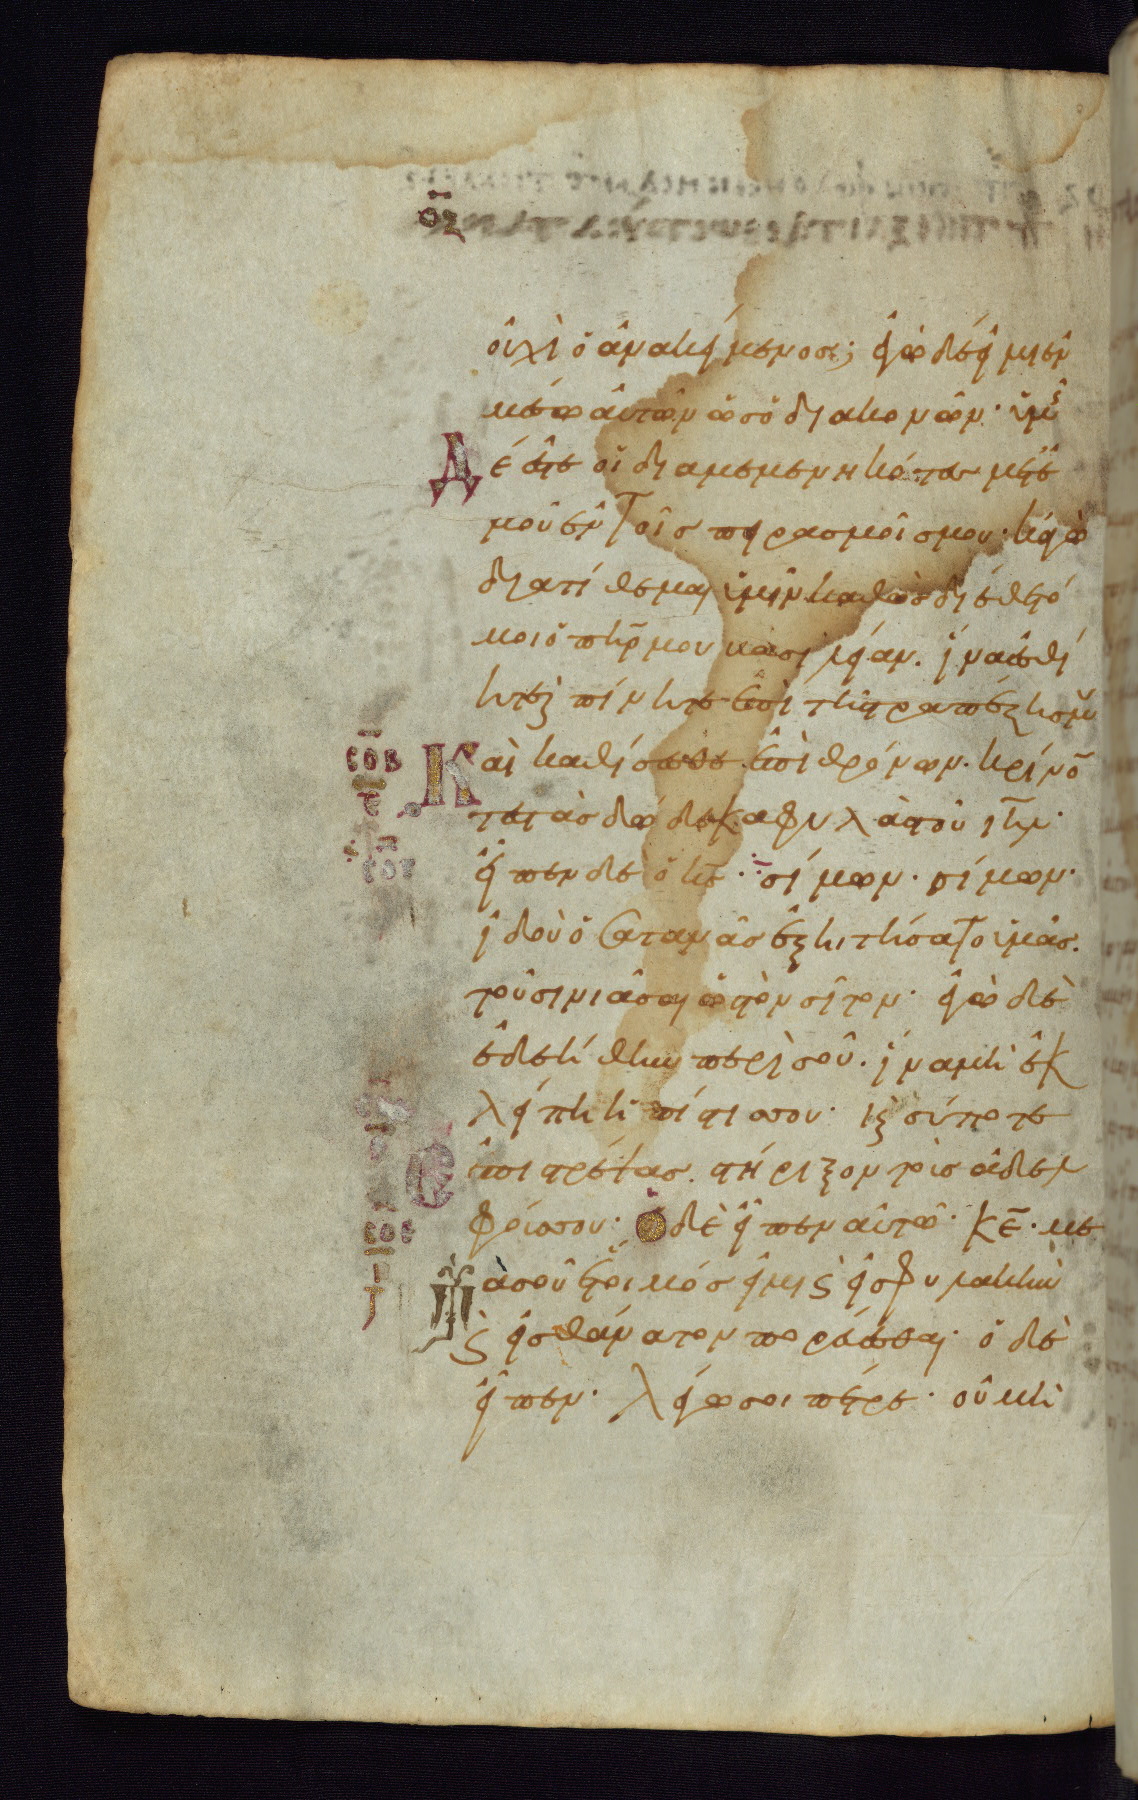 οζ
οὐχὶ ὁ ἀνακείμενος; ἐγὼ δέ εἰμι ἐν
μέσω αὐτῶν ὡς ὁ διακονῶν· ὑμεῖς
Δέ ἐστε οἱ διαμεμενηκότες μετ
ἐμοῦ ἐν τοῖς πειρασμοῖς μου· κἀγὼ
διατίθεμαι ὑμῖν καθὼς διέθετό
μοι ὁ πηρ μου βασιλείαν. ἵνα ἐσθί
ητε καὶ πίνητε ἐπὶ τῆς τραπέζης μου
σοβ
Καὶ καθίσεσθε ἐπὶ θρόνων. κρίνο
τες τὰς δώδεκα φυλὰς τοῦ ιηλ·
εἶπεν δὲ ὁ κς· σίμων· σίμων·
ἰδοὺ ὁ σατανᾶς ἐξητήσατο ὑμᾶς.
τοῦ σινιᾶσαι ὡς τὸν σῖτον· ἐγὼ δὲ
ἐδεήθην περὶ σοῦ. ἵνα μὴ ἐκ
λείπη ἡ πίστις σου· καὶ σύ ποτε
ἐπιστρέψας. στήριξον τοὺς ἀδελ
φούς σου· Ὁ δὲ εἶπεν αὐτῶ· κε· με
σοε
τὰ σοῦ ἕτοιμός εἰμι καὶ εἰς φυλακὴν
καὶ εἰς θάνατον πορεύεσθαι· ὁ δὲ
εἶπεν· λέγω σοι πέτρε· οὐ μὴ